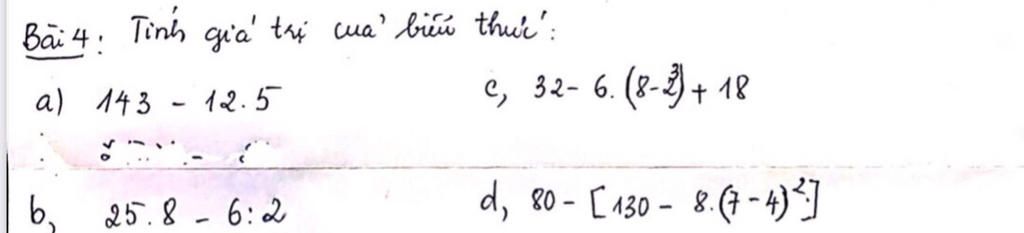 Bài 4: Tính giá trị của biểu thức:
a) 143 - 12.5
c, 32 - 6.(8-2³) + 18
b, 25.8 - 6:2
d, 80 - [130 - 8.(7-4)²]